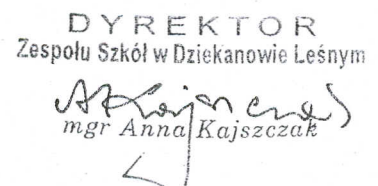 DYREKTOR
Zespołu Szkół w Dziekanowie Leśnym
mgr Anna Kajszczak